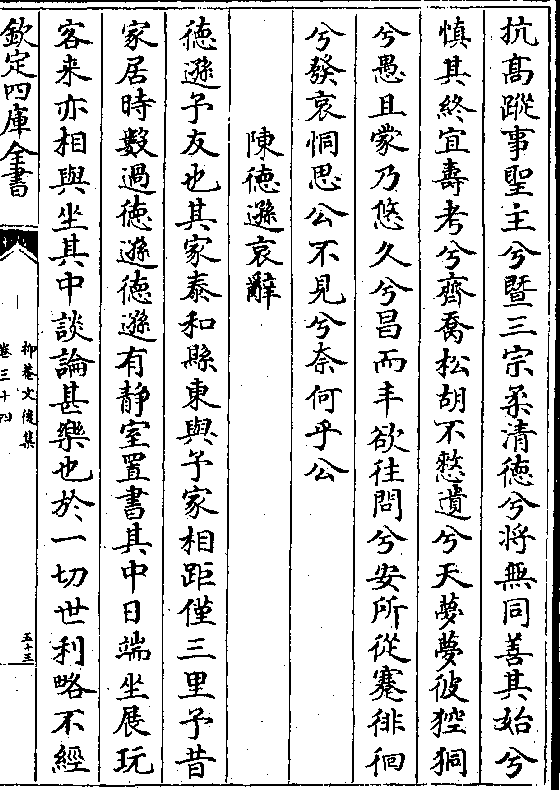 抗髙蹤事聖主兮暨三宗柔清徳兮将無同善其始兮
慎其終宜壽考兮齊喬松胡不憗遺兮天夢夢彼狡狪
兮愚且蒙乃悠久兮昌而丰欲往問兮安所從蹇徘徊
兮發哀恫思公不見兮奈何乎公
陳徳遜哀辭
徳遜予友也其家泰和縣東與予家相距僅三里予昔
家居時數過徳遜徳遜有静室置書其中日端坐展玩
客来亦相與坐其中談論甚樂也於一切世利略不經
欽定四庫全書
抑菴文後集
卷三十四
五十三